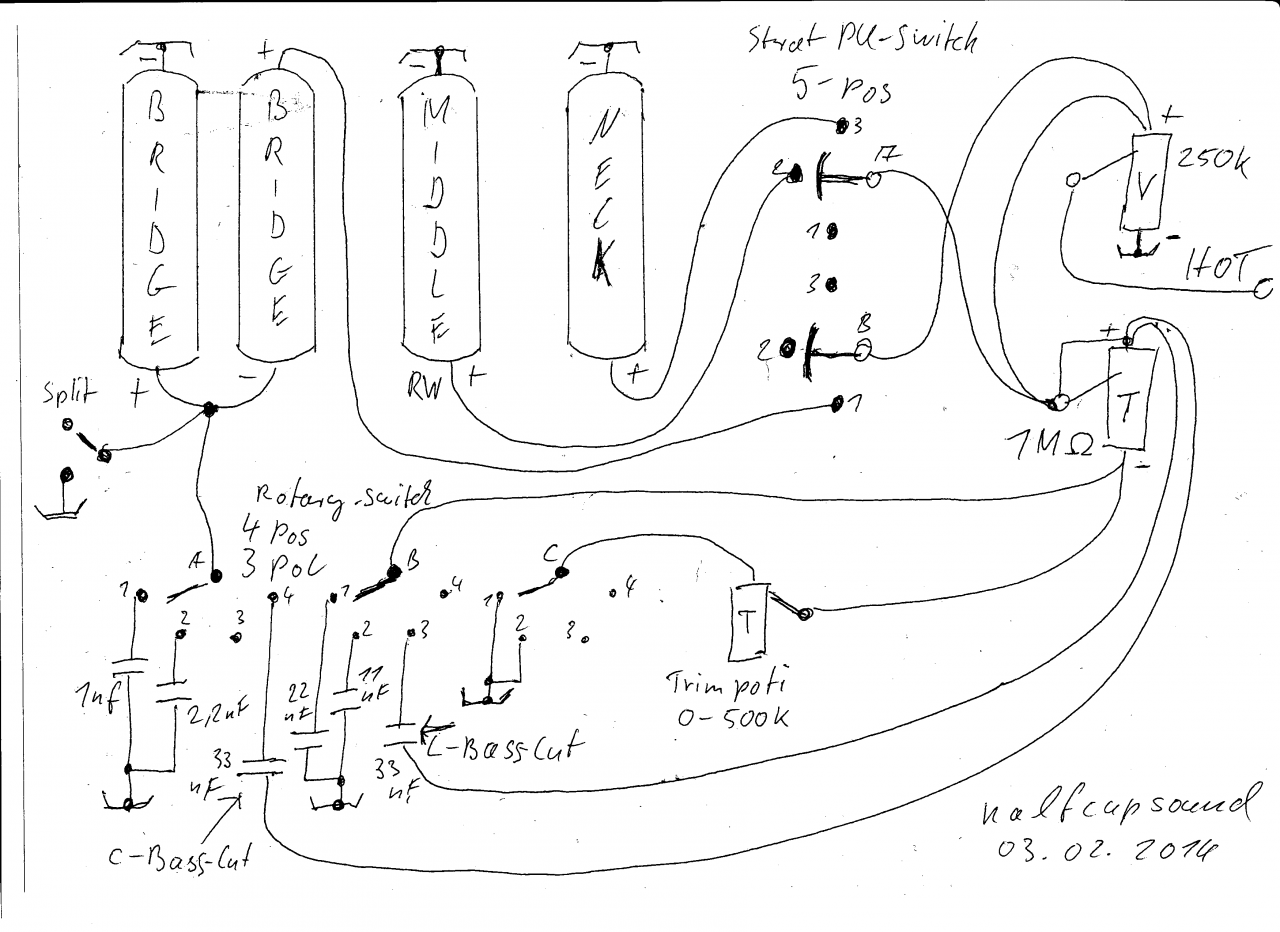 BRIDGE
BRIDGE
MIDDLE
NECK
+
-
-
+
-
RW
+
-
+
Strat PU-Switch
5-Pos
3
2
A
1
3
2
B
1
+
250k
V
-
HOT
+
T
1MΩ
-
Split
Rotary-switch
4 Pos
3 Pol
A
1
2
3
4
B
1
2
3
4
C
1
2
3
4
T
Trimpoti
0-500k
1nf
2,2nF
33
nF
C-Bass-Cut
22
nF
11
nF
33
nF
C-Bass-Cut
halfcupsound
03.02.2014